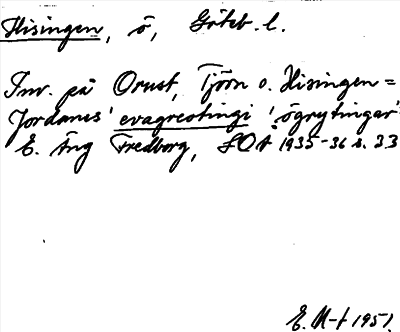 Hisingen, ö, Göteb. l.
Inv. på Orust, Tjörn o. Hisingen =
Jordanes' evagreotingi 'ögrytingar'
E. Äng Fredborg, SOÅ 1935-36 s. 33
E. M-t 1951.